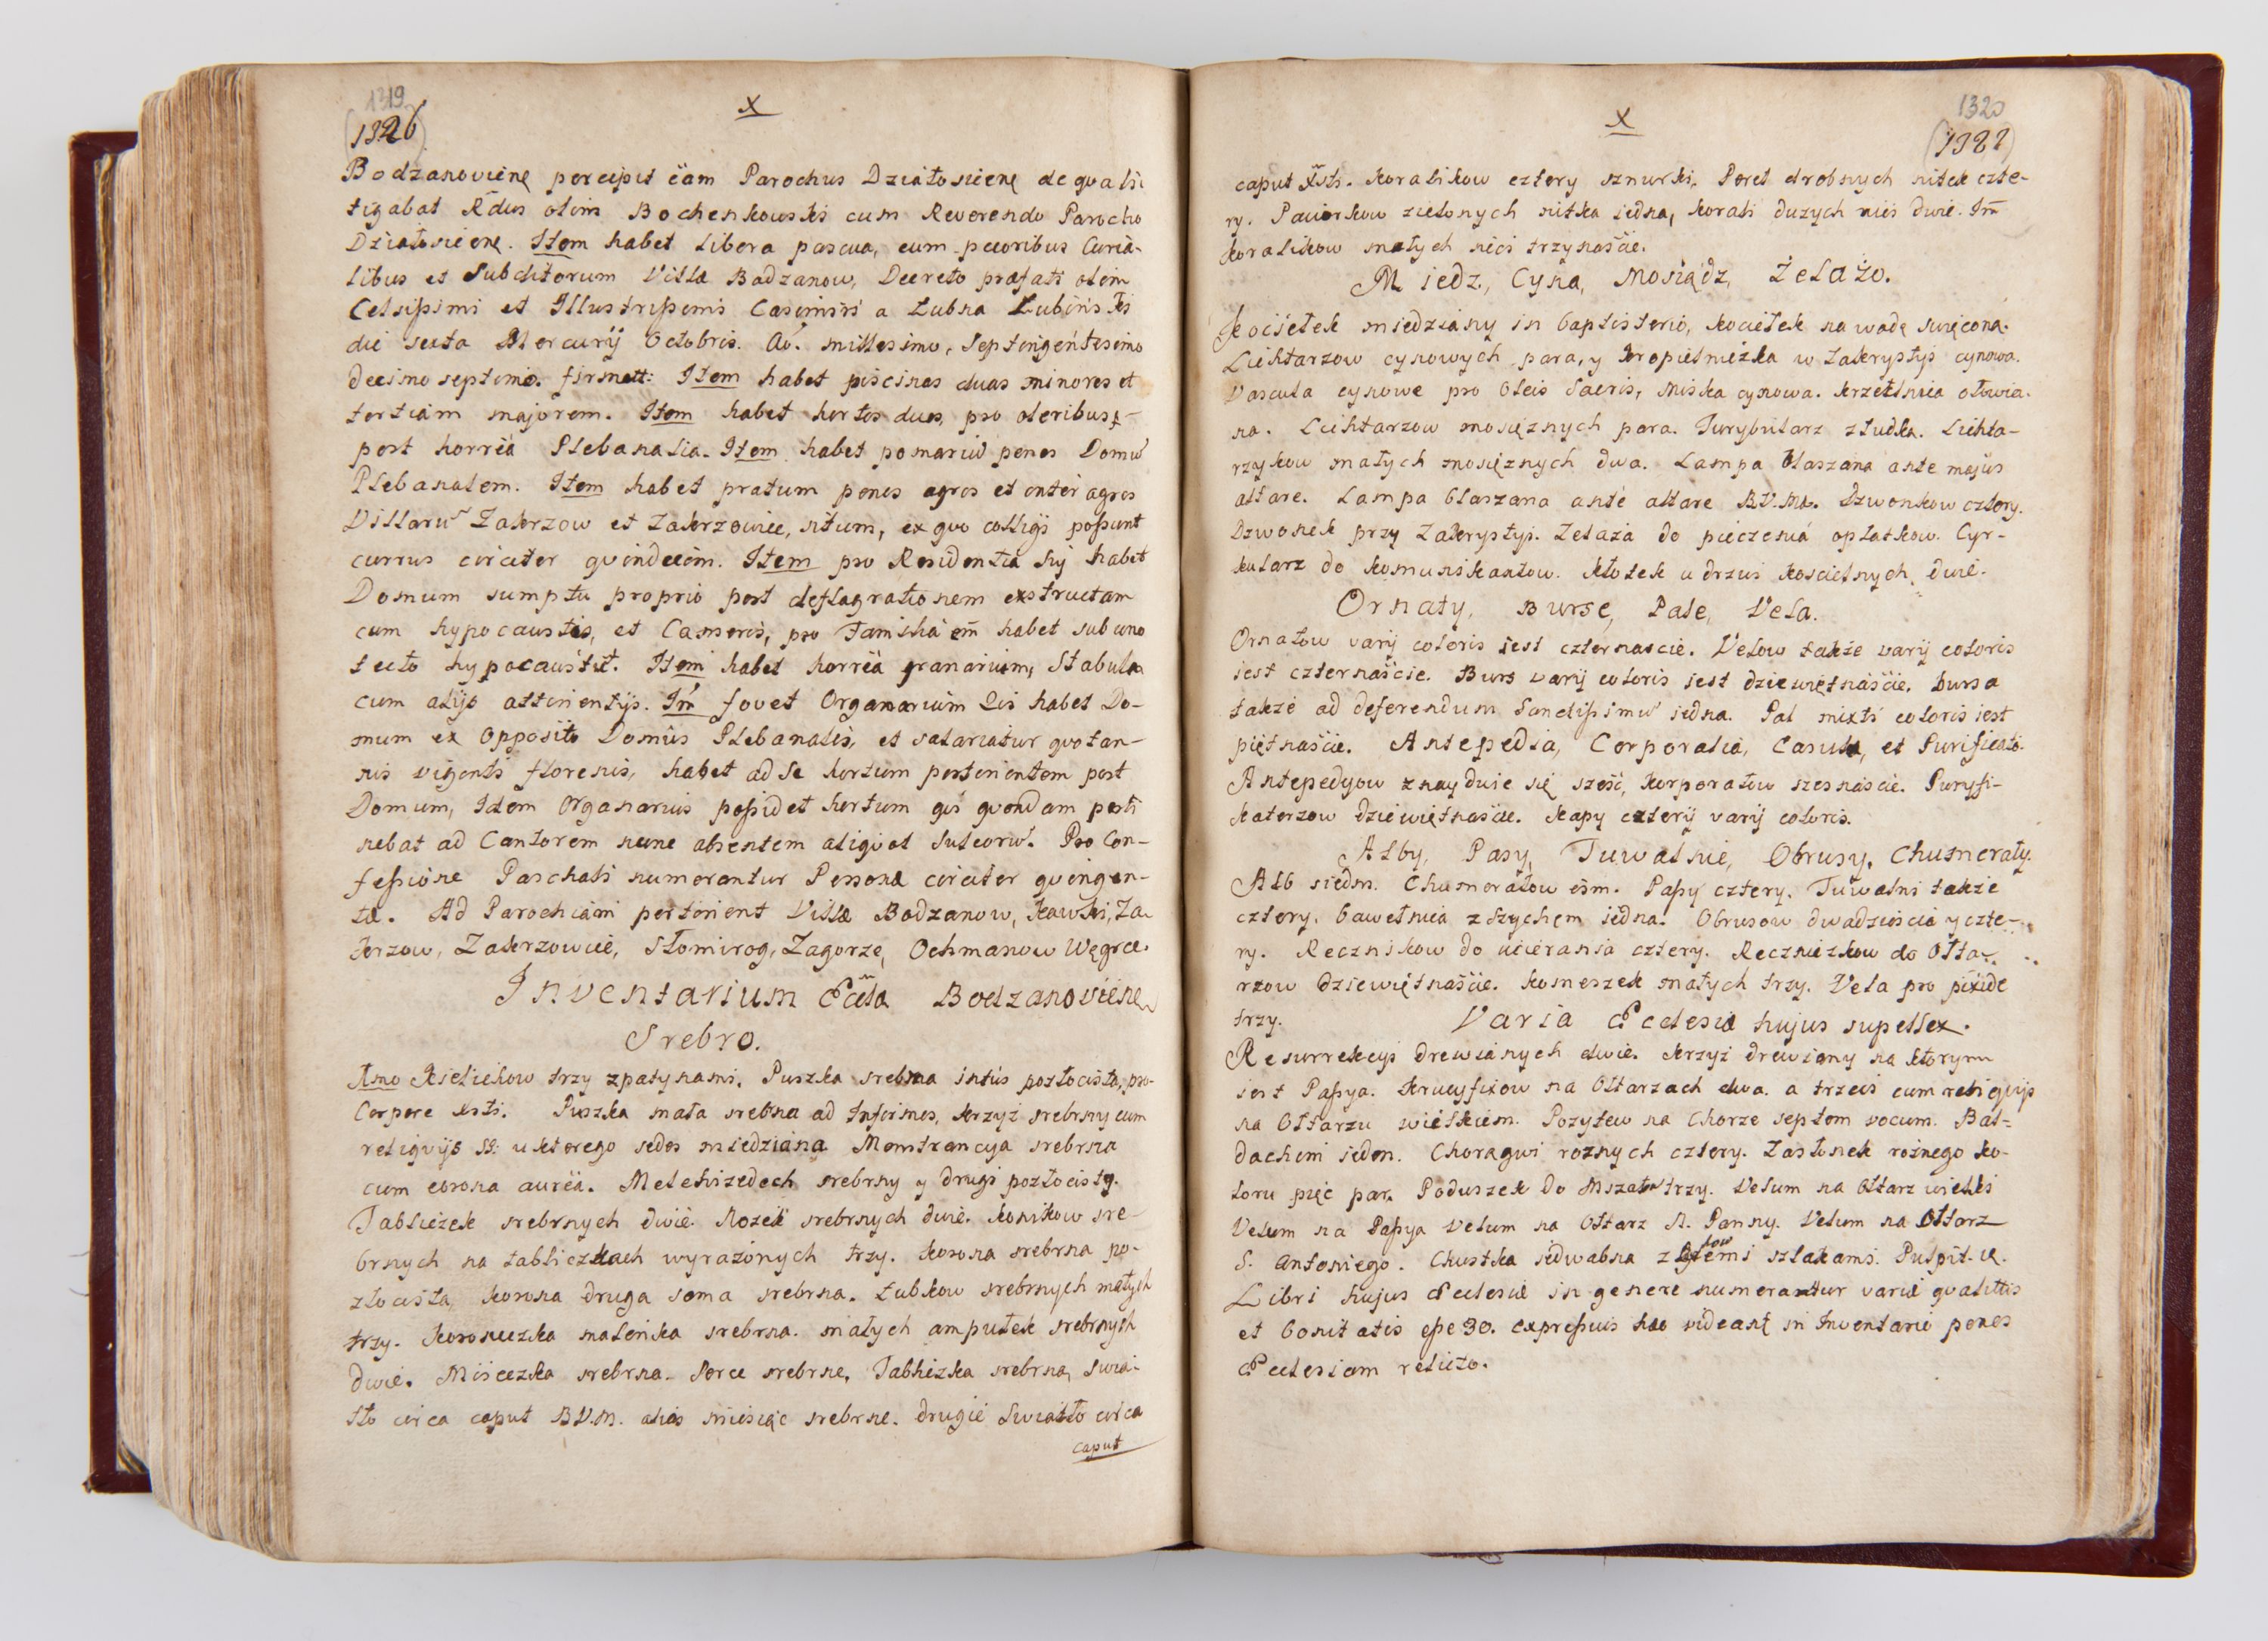 1319
X
(1326)
Bodzanovienę percipit eam Parochus Dziatosienę de qua liti
tigabat Rdus olim Bochenkowski cum Reverendo Parocho
Dziatosienę. Item habet libera pascua, cum pecoribus Curia-
libus et Subditorum Villæ Bodzanow, Decreto præfati olim
Celsissimi et Illustrissimi Casimiri a Lubna Lubinski
die sexta Mercurij Octobris. Aō. millesimo, Septingentesimo
decimo septimo. firmatt: Item habet piscinas duas minores et
tertiam majorem. Item habet hortos duos, pro oleribus
post horrea Plebanalia. Item habet pomariū penes Domū
Plebanalem. Item habet pratum penes agros et inter agros
Villarū Zakrzow et Zakrzowiec, situm, ex quo colligi possunt
currus circiter quindecim. Item pro Residentia sui habet
Domum sumptu proprio post deflagrationem exstructam
cum hypocaustis, et Cameris, pro Familia em̄ habet sub uno
tecto hypocaustū. Item habet horrea granarium, Stabula
cum alijs attinentijs. Im̄ fovet Organarium Qui habet Do-
mum ex Opposito Domus Plebanalis, et salariatur quotan-
nis viginti florenis, habet ad se hortum pertinentem post
Domum, Idem Organarius possidet hortum qui quondam perti
nebat ad Cantorem nunc absentem aliquot sulcorū. Pro Con-
fessione Paschali numerantur Personæ circiter quingen-
tæ. Ad Parochiam pertinent Villæ Bodzanow, Kawki, Za-
krzow, Zakrzowiec, Słomirog, Zagorze, Ochmanow Węgrce.
Inventarium Eccła Bodzanoviene
Srebro.
Imo Kielichow trzy z patynami. Puszka srebrna intus pozłocista, pro
Corpore Xsti. Puszka mała srebrna ad Infirmos, krzyż srebrny cum
reliquijs SS: u ktorego sedes miedziana Monstrancya srebrna
cum corona aurea. Melchizedech srebrny y drugi pozłocisty.
Tabliczek srebrnych dwie. Nozek srebrnych dwie. konikow sre-
brnych na tabliczkach wyrażonych trzy. korona srebrna po-
złocista, korona druga sama srebrna. Łubkow srebrnych małych
trzy. Koroneczka maleńka srebrna. małych ampułek srebrnych
dwie. Miseczka srebrna. Serce srebrne, Tabliczka srebrna, Swia-
tło circa caput B.V.M. alias miesiąc srebrne. drugie Swiatło circa
caput
1320
X
(1321)
caput Xsti. koralikow cztery sznurki. Pereł drobnych nitek czte-
ry. Paciorkow zielonych nitka iedna, korali duzych nici dwie. Im̄
koralikow małych nici trzynaście.
Miedz, Cyna, Mosiądz, Żelazo.
Kociełek miedziany in baptisterio, kociełek na wodę swięconą.
Lichtarzow cynowych para, y kropielniczka w Zakrystyi cynowa.
Vascula cynowe pro Oleis Sacris, miska cynowa. krzcielnica ołowia-
na. Lichtarzow mosięznych para. Turybularz z łudką. Lichta-
rzykow małych mosięznych dwa. Lampa blaszana ante majus
altare. Lampa blaszana ante altare B.V.Mæ. Dzwonkow cztery.
Dzwonek przy Zakrystyi. Zelaza do pieczenia opłatkow. Cyr-
kularz do komunikantow. kłotek u drzwi koscielnych dwie.
Ornaty, Bursę, Pale, Vela.
Ornatow varij coloris iest czternascie. Velow także varij coloris
iest czternaście. Burs varij coloris iest dziewiętnaście. bursa
także ad deferendum Sanctissimū iedna. Pal mixti coloris iest
piętnaście. Antepedia, Corporalia, Casula, et Purificato.
Antepedyow znayduie się sześć, korporałow szesnaście. Puryfi-
katerzow dziewiętnaście. kapy czterij varij coloris.
Alby, Pasy, Tuwalnie, Obrusy, Chumeraty.
Alb siedm. Chumerałow ośm. Pasy cztery. Tuwalni także
cztery. bawełnica z szychem iedna. Obrusow dwadzieścia y czte-
ry. Recznikow do ucierania cztery. Reczniczkow do Ołta-
rzow dziewiętnaście. komeszek małych trzy. Vela pro pixide
trzy. Varia Ecclesiæ hujus supellex.
Resurrekcyi drewianych dwie. krzyż drewiany na ktorym
iest Passya. krucyfixow na Ołtarzach dwa. a trzeci cum reliquijs
na Ołtarzu wielkiem. Pozytew na Chorze septem vocum. Bal-
dachim ieden. Choragwi roznych cztery. Zasłonek rożnego ko-
loru pięć par. Poduszek do Mszałow trzy. Velum na Ołtarz wielki
Velum na Passya Velum na Ołtarz N. Panny. Velum na Ołtarz
S. Antoniego. Chustka iedwabna z złotemi szlakami. Pulpit. &.
Libri hujus Ecclesiæ in genere numerantur variæ qualittis
et bonitatis esse 30. expressius hæc videant in Inventario penes
Ecclesiam relicto.